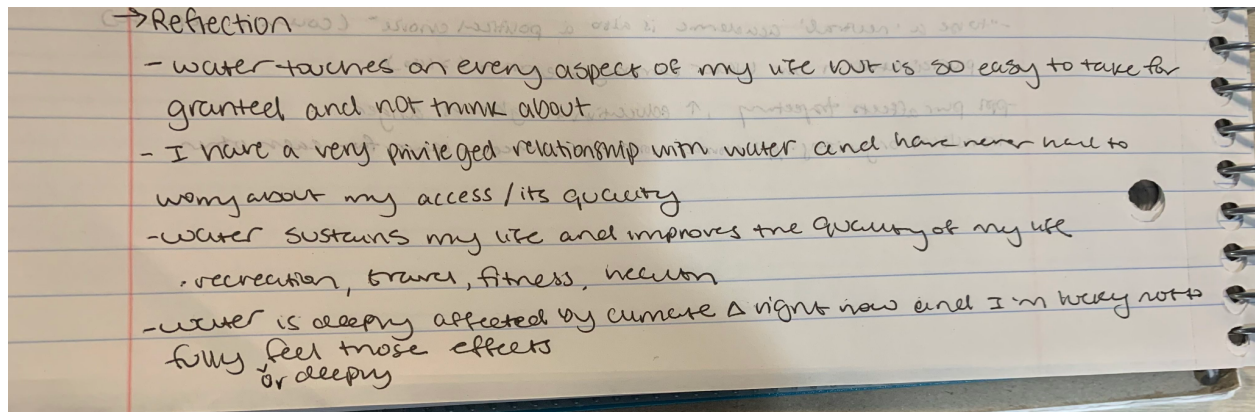 → Reflection
- water touches on every aspect of my life but is so easy to take for
granted and not think about
- I have a very privileged relationship with water and have never had to
worry about my access / its quality
- water sustains my life and improves the quality of my life
· recreation, travel, fitness, health
- water is deeply affected by climate Δ right now and I'm lucky not to
fully feel those effects
or deeply